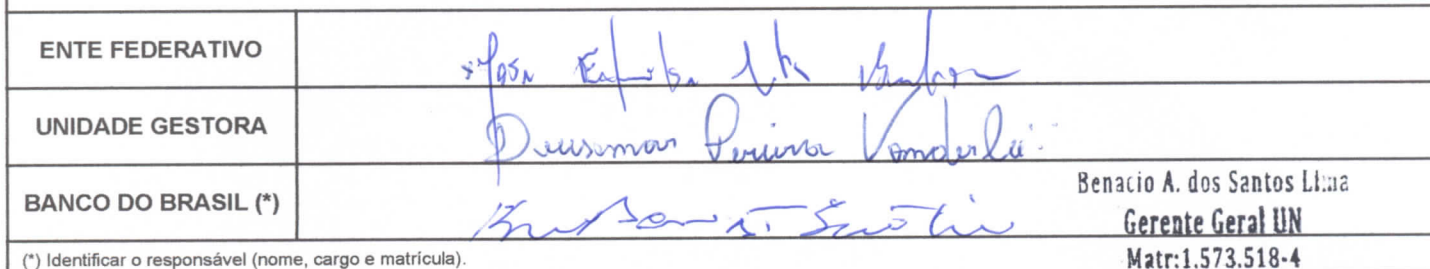 ENTE FEDERATIVO
UNIDADE GESTORA Deusemar Pereira Vanderlei
BANCO DO BRASIL (*)
Benacio A. dos Santos Lima
Gerente Geral UN
Matr:1.573.518-4
(*) Identificar o responsável (nome, cargo e matrícula).